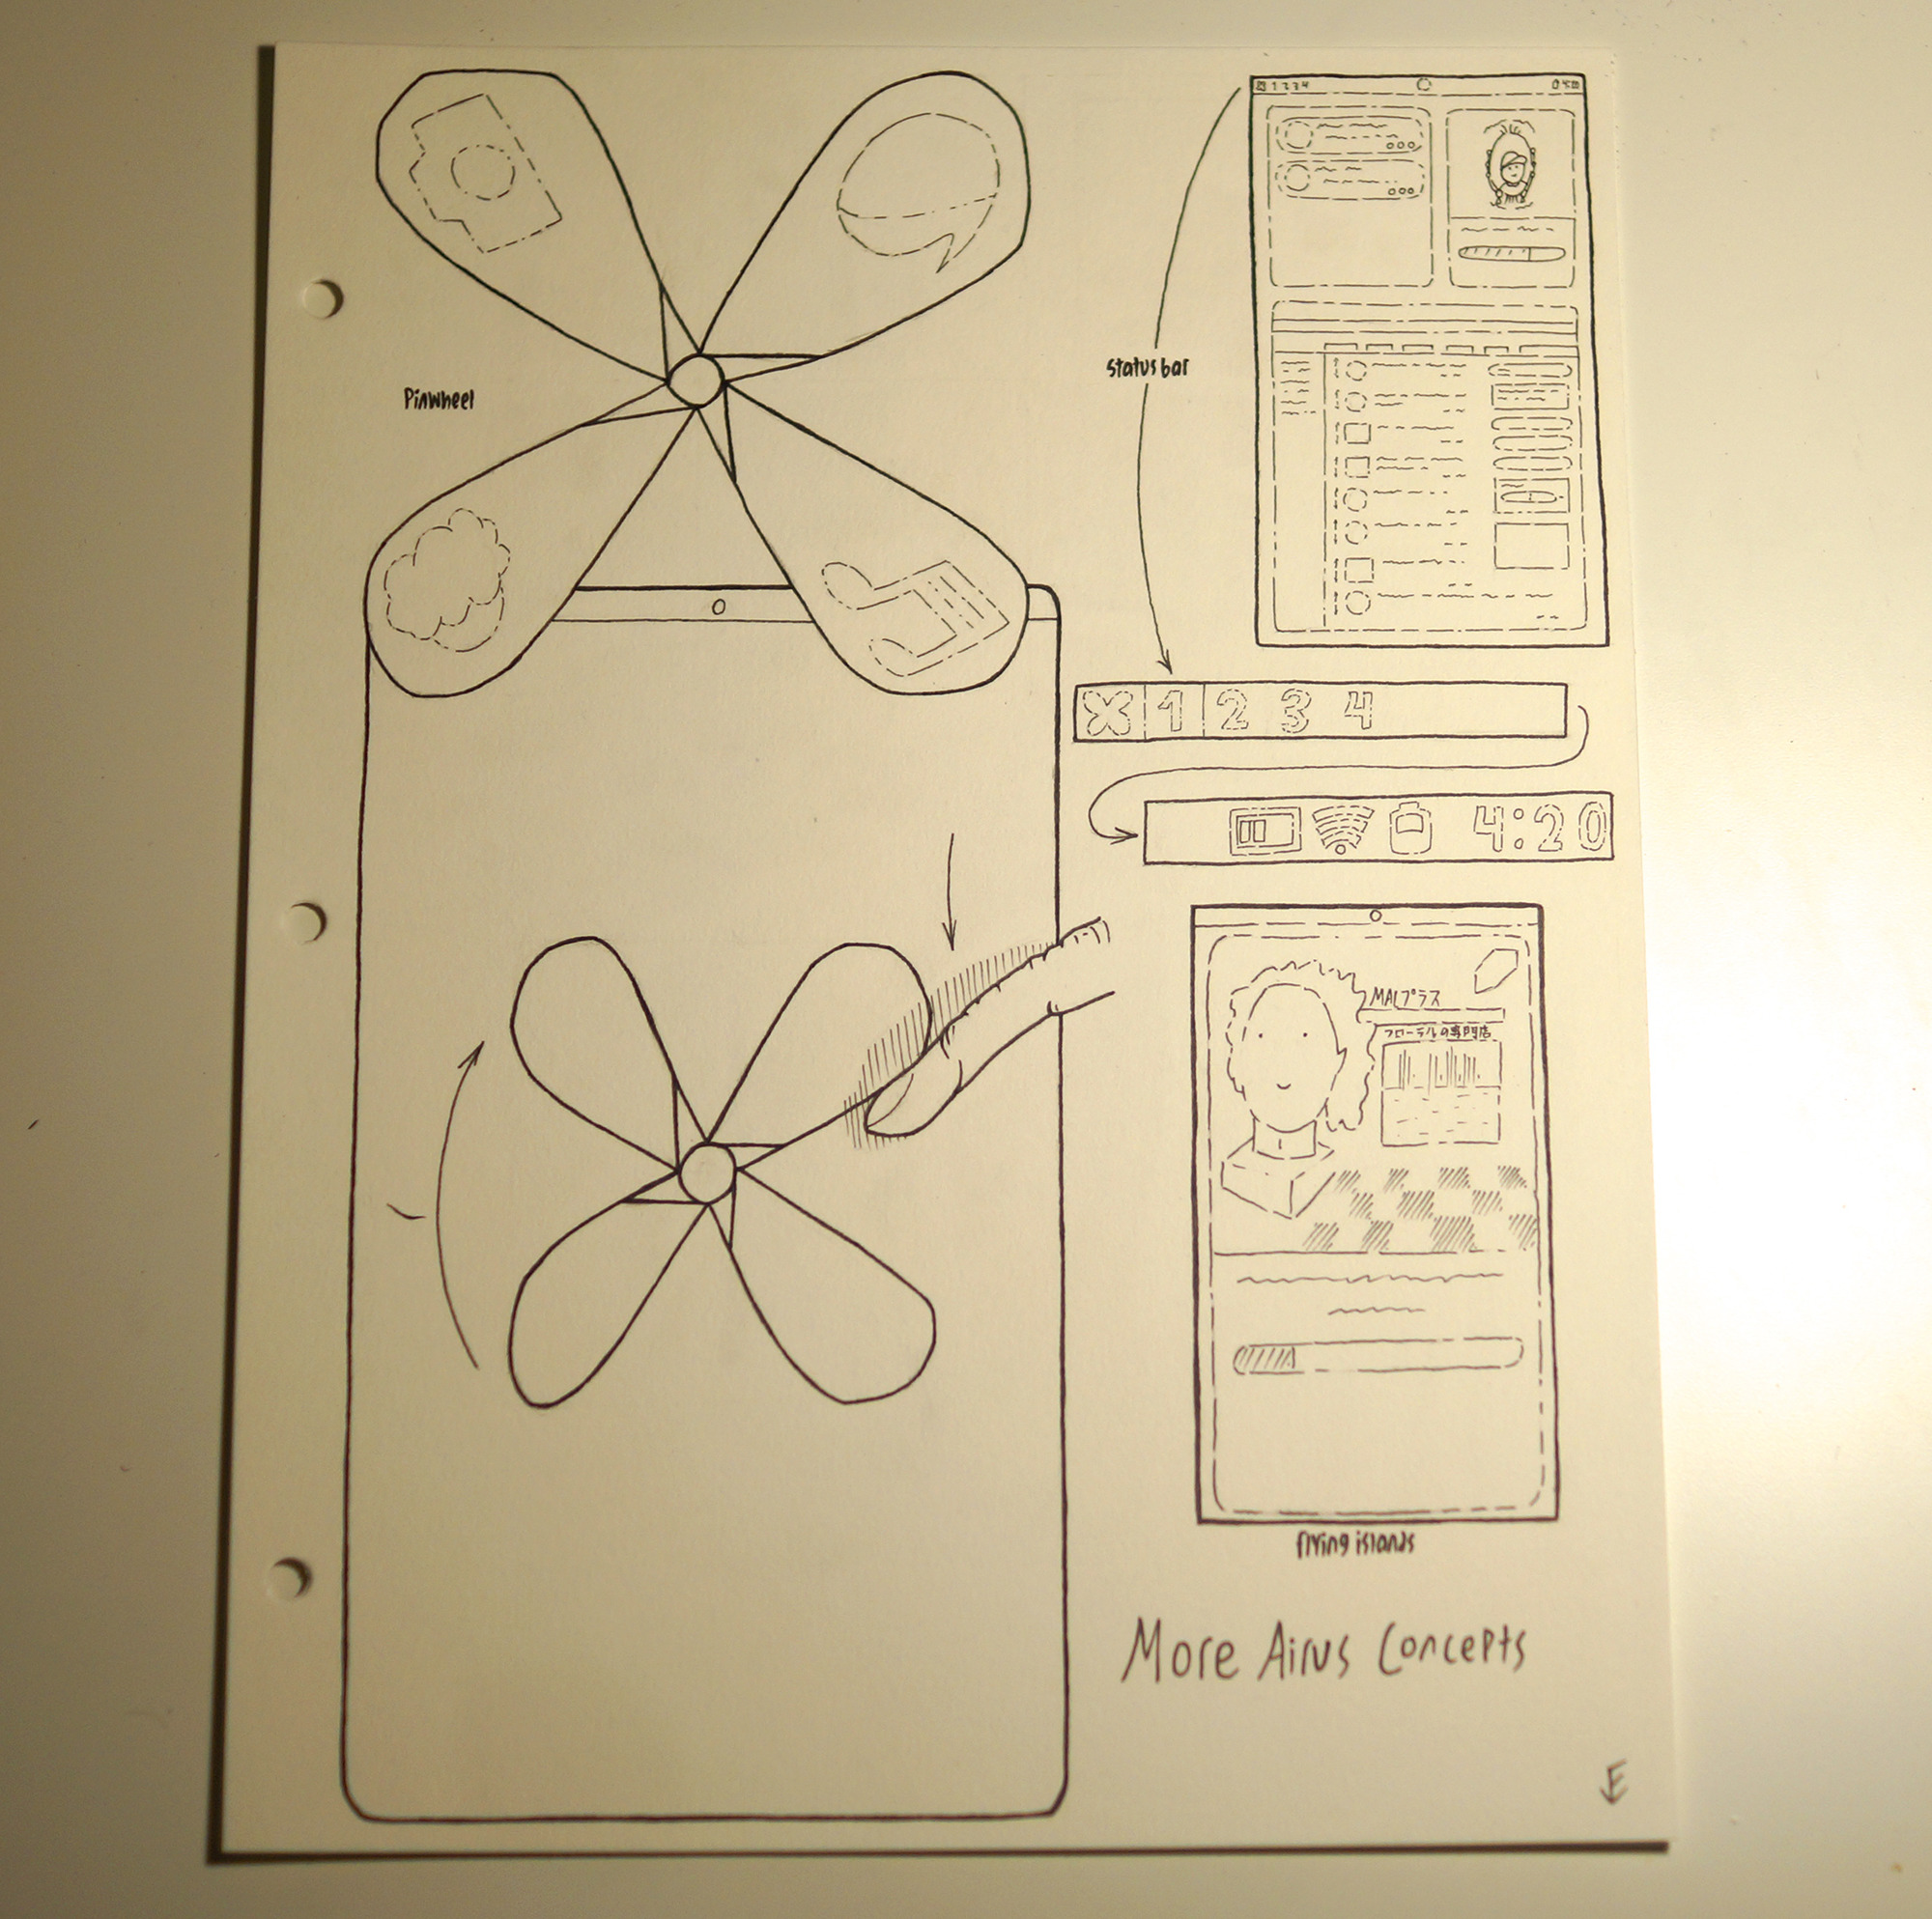 1234
Pinwheel
status bar
1 2 3 4
4:20
MALプラス
フローラルの専門店
flying islands
More Airus Concepts